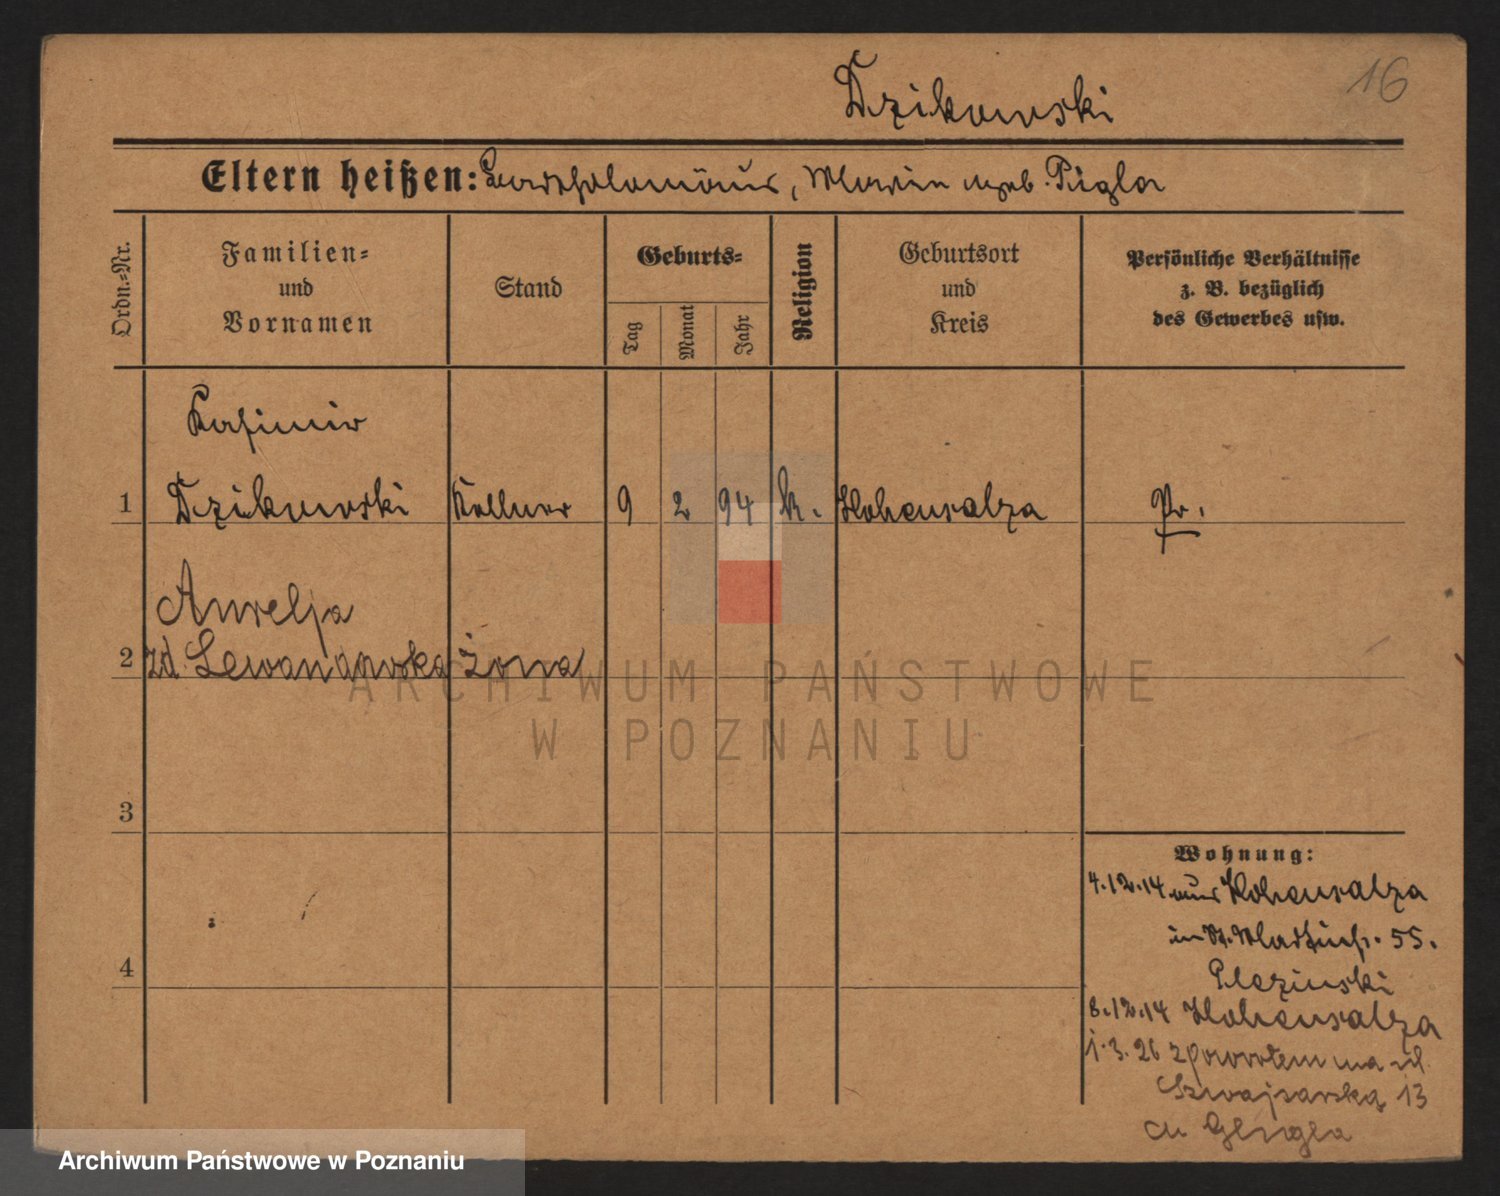 16
Dzikowski
Eltern heißen: Bartholomäus, Maria geb. Pigla
Ordn.=Nr.
Familien=
und
Vornamen
Stand
Geburts=
Tag
Monat
Jahr
Religion
Geburtsort
und
Kreis
Persönliche Verhältnisse
z. B. bezüglich
des Gewerbes usw.
Kasimir
1 Dzikowski Kellner 9 2 94 k. Hohensalza Pr.
Aurelja
2 zd. Lewandowska żona
3
4
Wohnung:
4.12.14 aus Hohensalza
in St. 55.
8.12.14 Hohensalza
1.3.26 zpowrotem na ul.
Szwajcarską 13
ARCHIWUM PAŃSTWOWE
W POZNANIU
Archiwum Państwowe w Poznaniu